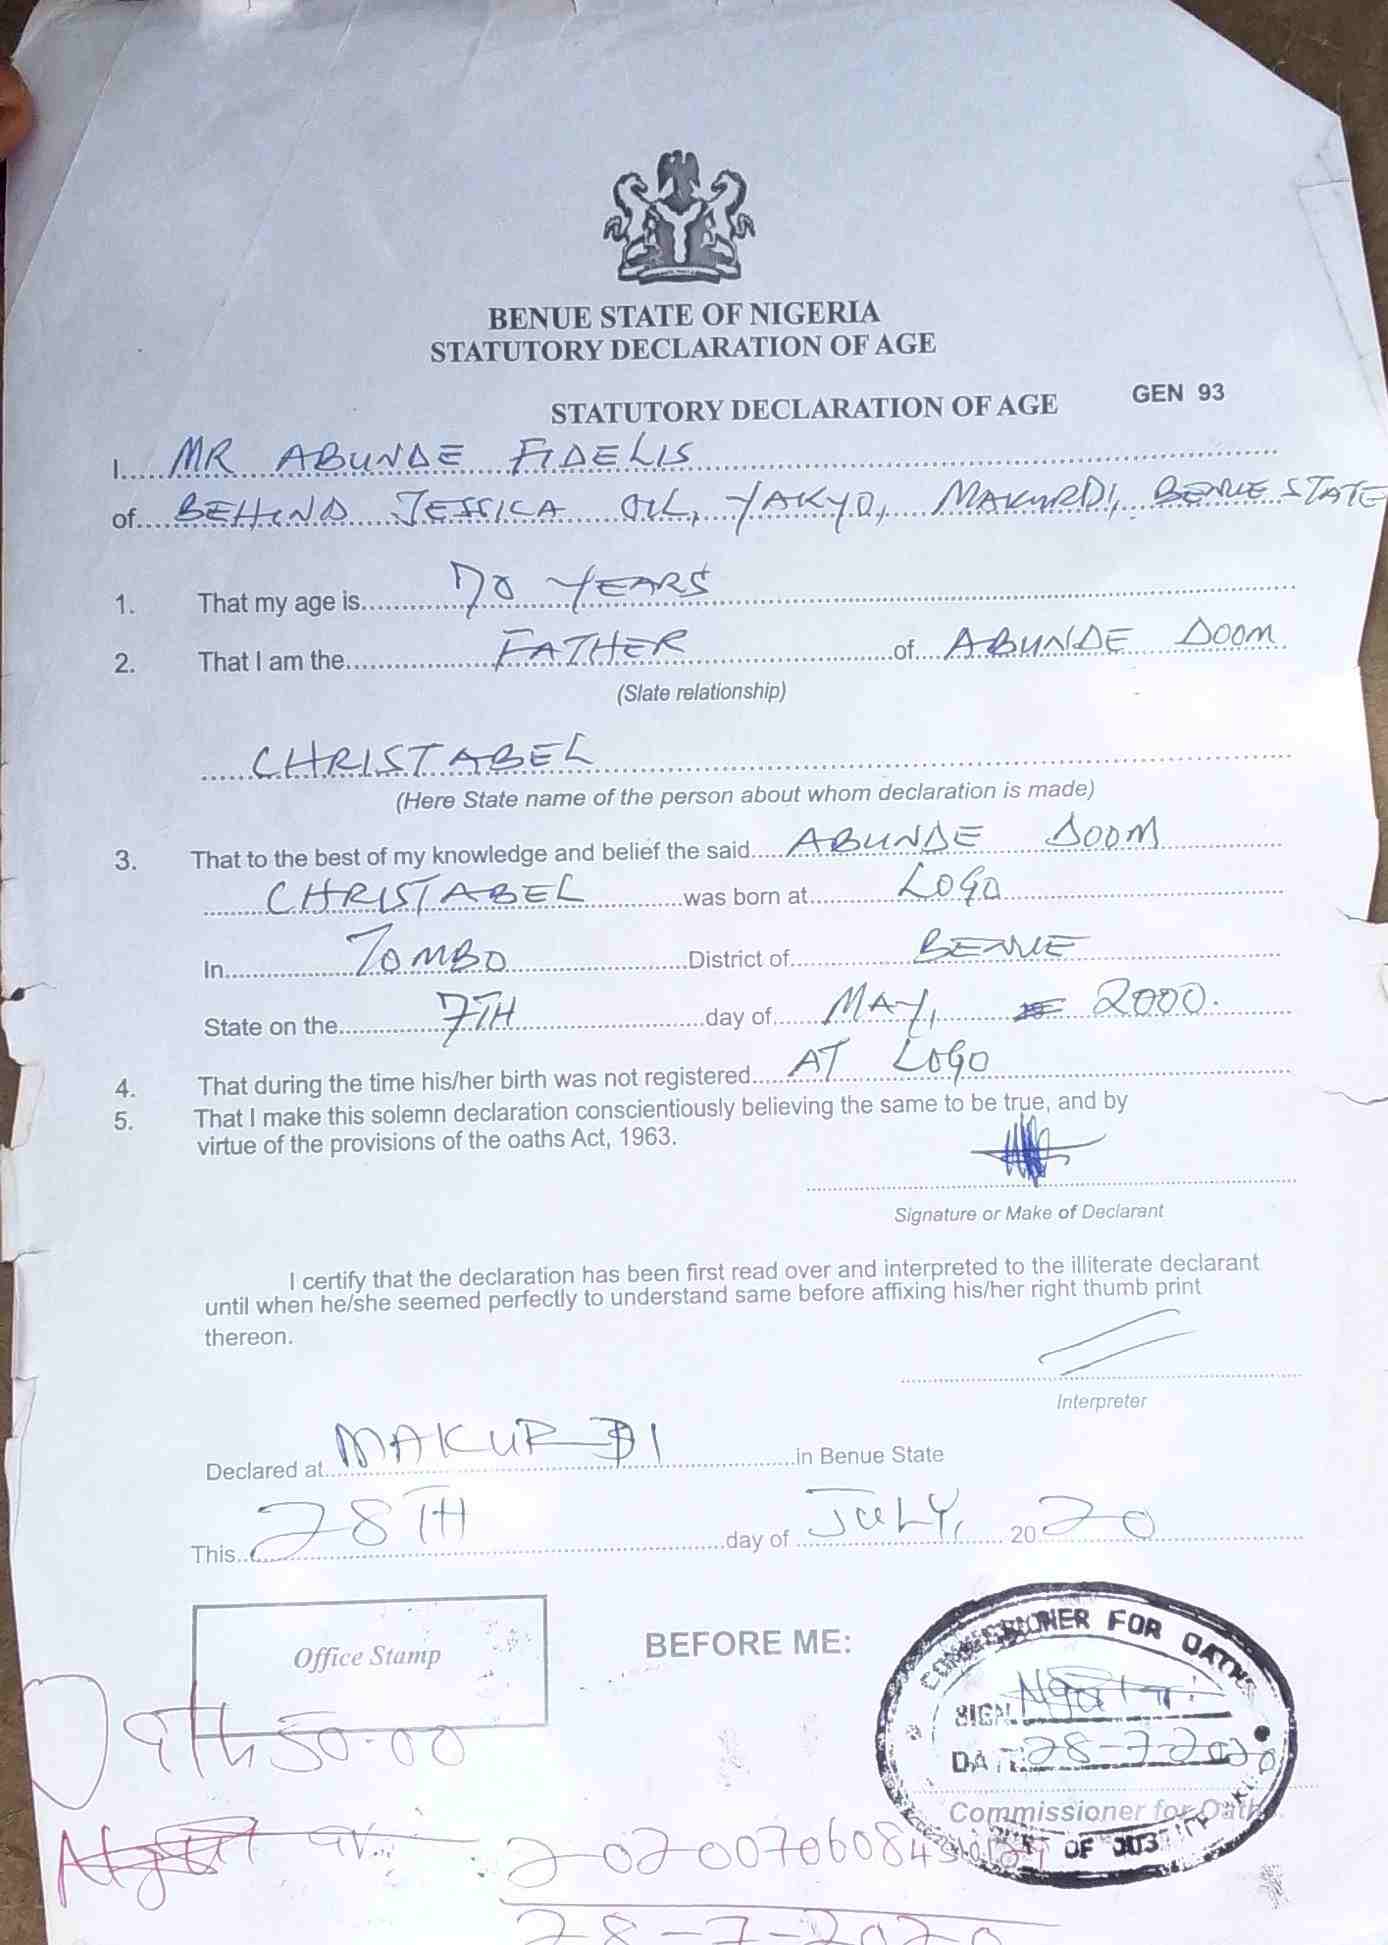 BENUE STATE OF NIGERIA
STATUTORY DECLARATION OF AGE
STATUTORY DECLARATION OF AGE GEN 93
I..... MR ABUNDE FIDELIS
of.... BEHIND JESSICA OIL, YAKYO, MAKURDI, BENUE STATE
1. That my age is 70 YEARS
2. That I am the FATHER of ABUNDE DOOM
(Slate relationship)
CHRISTABEL
(Here State name of the person about whom declaration is made)
3. That to the best of my knowledge and belief the said ABUNDE DOOM
CHRISTABEL was born at LOGO
In TOMBO District of BENUE
State on the 7TH day of MAY, 2000.
4. That during the time his/her birth was not registered AT LOGO
5. That I make this solemn declaration conscientiously believing the same to be true, and by
virtue of the provisions of the oaths Act, 1963.
Signature or Make of Declarant
I certify that the declaration has been first read over and interpreted to the illiterate declarant
until when he/she seemed perfectly to understand same before affixing his/her right thumb print
thereon.
Interpreter
Declared at MAKURDI in Benue State
This 28TH day of JULY, 2020
Office Stamp
BEFORE ME:
COMMISSIONER FOR OATHS
SIGN.
DATE: 28-7-2020
Commissioner for Oaths
OF JUSTICE
50.00
28-7-2020